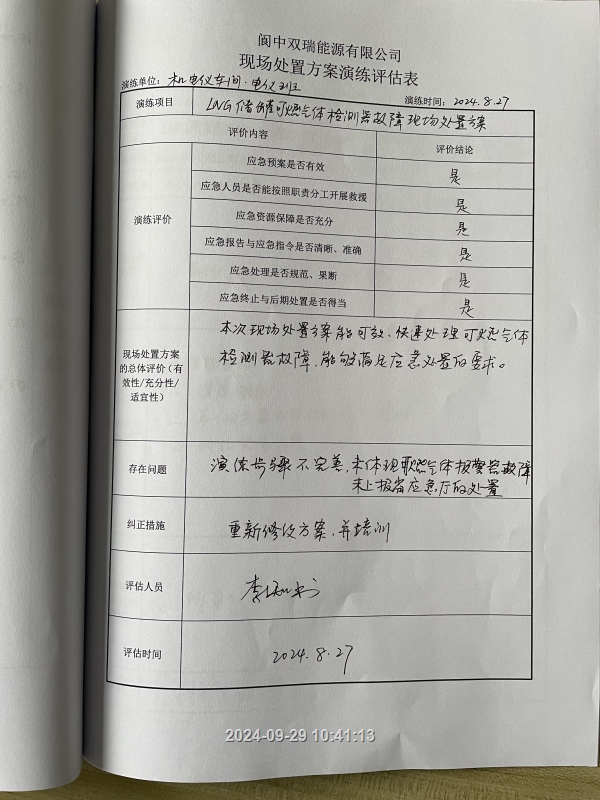 阆中双瑞能源有限公司
现场处置方案演练评估表
演练单位：机电仪车间·电仪班
演练时间：2024.8.27
演练项目
LNG储罐可燃气体检测器故障现场处置方案
评价内容
评价结论
演练评价
应急预案是否有效
是
应急人员是否能按照职责分工开展救援
是
应急资源保障是否充分
是
应急报告与应急指令是否清晰、准确
是
应急处理是否规范、果断
是
应急终止与后期处置是否得当
是
现场处置方案
的总体评价（有
效性/充分性/
适宜性）
本次现场处置方案能有效、快速处理可燃气体
检测器故障，能够满足应急处置的要求。
存在问题
演练步骤不完善，未体现可燃气体报警器故障
未上报省应急厅的处置
纠正措施
重新修改方案，并培训
评估人员
评估时间
2024.8.27
2024-09-29 10:41:13